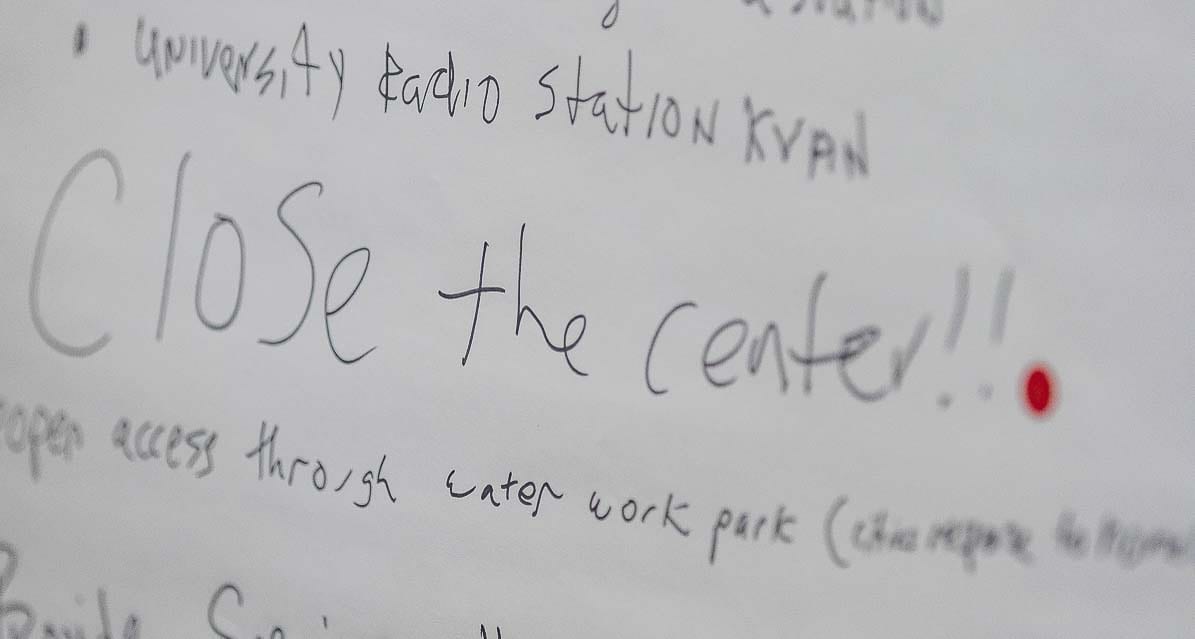 • University Radio Station KVAN
Close the center!!
open access through water work park (